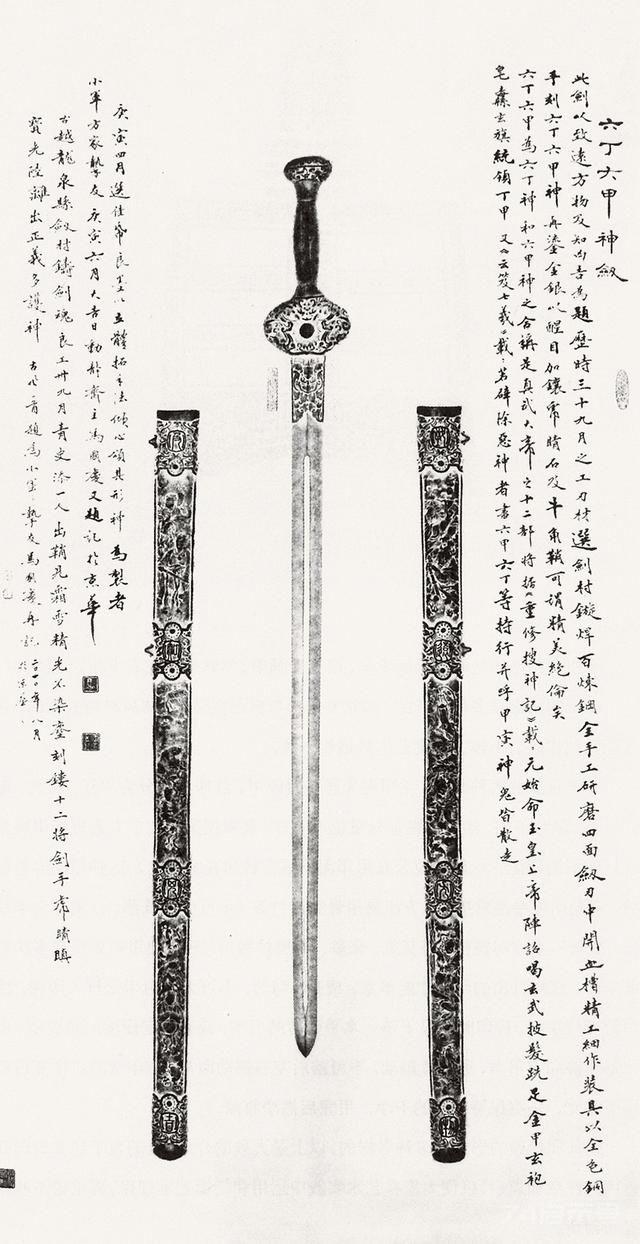 六丁六甲神劔
此劍以致遠方物及知內吉為題歷時三十九月之工刀材選劍村鏇焊百煉鋼全手工研磨四面劔刃中開血槽精工細作裝具以全色銅
手刻六丁六甲神再鎏金銀以醒目加鑲虎睛石及牛角鞘可謂精美絕倫矣
六丁六甲為六丁神和六甲神之合稱是真武大帝之十二部將据《重修搜神記》載，元始命玉皇上帝陣詔喝玄武披髮跣足金甲玄袍
皂纛玄旗統領丁甲 又《云笈七籤》載，若辟除惡神者書六甲六丁等持行并呼甲寅神鬼皆散走
庚寅四月選佳帋良墨以立體拓手法傾心頌其形神 為製者
小軍方家摯友 庚寅六月大吉日動靜齋主馬國慶又題記於京華
古越龍泉縣劔村鑄劍魂 良工卅九月青史添一人 出鞘見霜雪精光不染塵 刻鏤十二將劍手虎睛瞋
寶光陸離出正義多護神 古 月題為小軍摯友馬國慶再記 二〇 年八月於京華